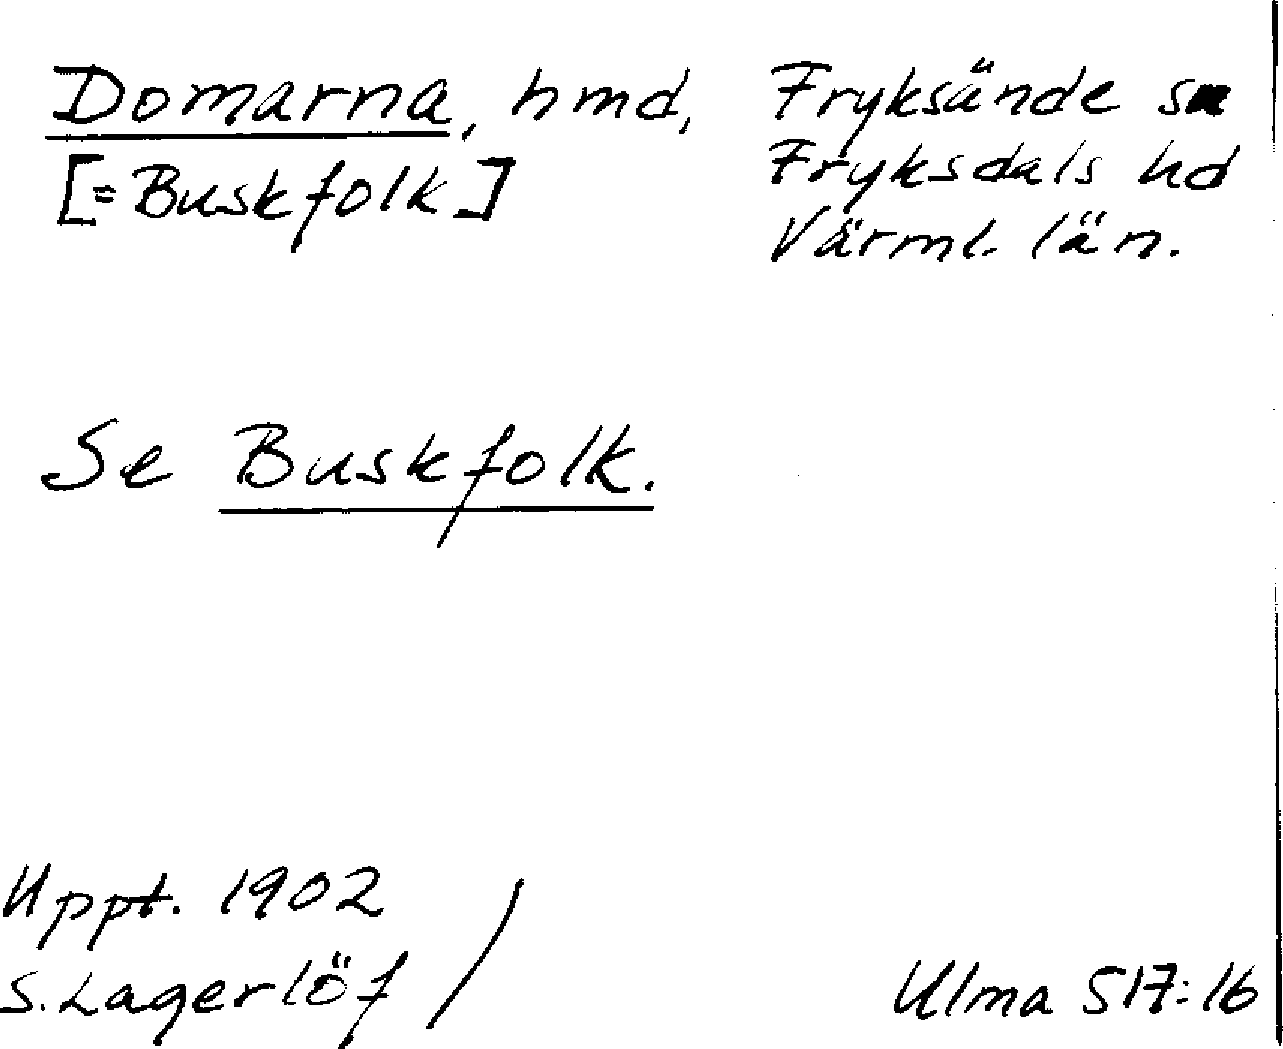 Domarna, hmd, Fryksände sn
[=Buskfolk] Fryksdals hd
Värml. län.
Se Buskfolk.
Uppt. 1902
S. Lagerlöf
Ulma 517:16